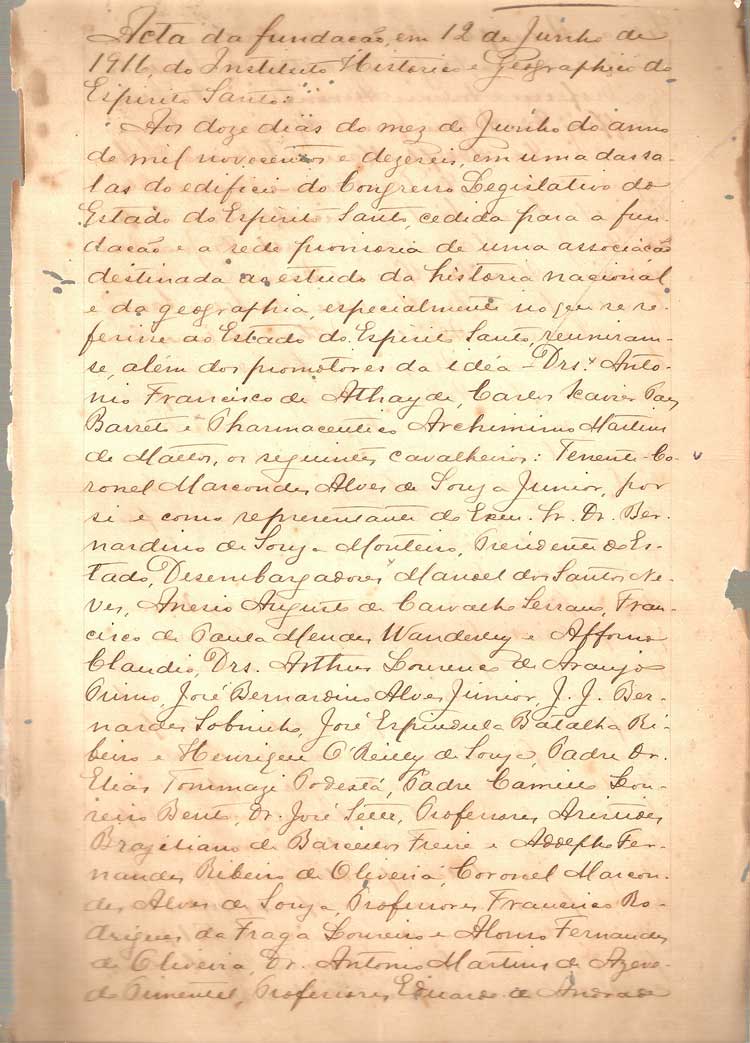 Acta da fundação, em 12 de Junho de
1916, do Instituto Historico e Geographico do
Espirito Santo.
Aos doze dias do mez de Junho do anno
de mil novecentos e dezeseis, em uma das sa-
las do edificio do Congresso Legislativo do
Estado do Espirito Santo, cedida para a fun-
dação e a sede provisoria de uma associação
destinada ao estudo da historia nacional
e da geographia, especialmente no que se re-
ferisse ao Estado do Espirito Santo, reuniram-
se, além dos promotores da idéa - Drs. Anto-
nio Francisco de Athayde, Carlos Xavier Paes
Barreto e Pharmaceutico Archimimo Martins
de Mattos, os seguintes cavalheiros: Tenente-Co-
ronel Marcondes Alves de Souza Junior, por
si e como representante do Exm. Sr. Dr. Ber-
nardino de Souza Monteiro, Presidente do Es-
tado, Desembargadores Manoel dos Santos Ne-
ves, Anesio Augusto de Carvalho Serrano, Fran-
cisco de Paula Mendes Wanderley e Affonso
Claudio, Drs. Arthur Lourenço de Araujo
Primo, José Bernardino Alves Junior, J. J. Ber-
nardes Sobrinho, José Espindula Batalha Ri-
beiro e Henrique O'Reilly de Souza, Padre Dr.
Elias Tommazi Podestá, Padre Camillo Lou-
reiro Bento, Dr. José Sette, Professores Aristides
Braziliano de Barcellos Freire e Adolpho Fer-
nandes Ribeiro de Oliveira, Coronel Marcon-
des Alves de Souza, Professores Francisco Ro-
drigues da Fraga Loureiro e Aloiso Fernandes
de Oliveira, Dr. Antonio Martins de Azeve-
do Pimentel, Professores Eduardo de Andrade